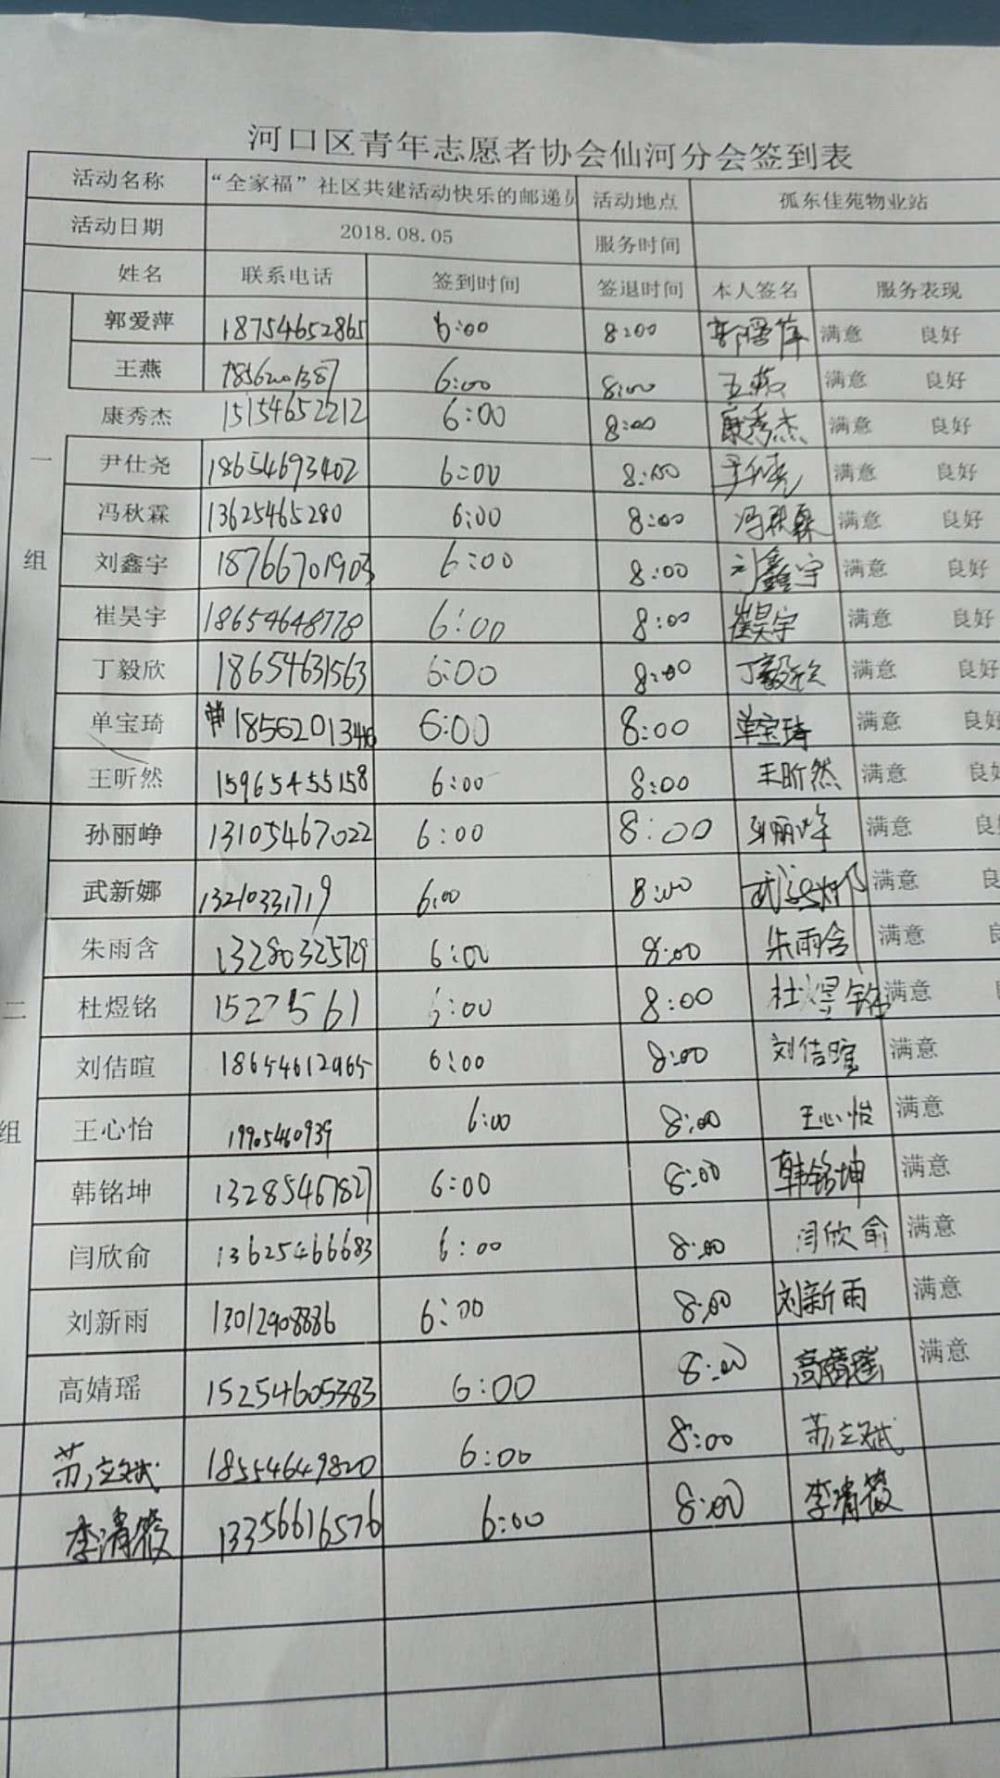 河口区青年志愿者协会仙河分会签到表
活动名称 “全家福”社区共建活动快乐的邮递员 活动地点 孤东佳苑物业站
活动日期 2018.08.05 服务时间
姓名 联系电话 签到时间 签退时间 本人签名 服务表现
郭爱萍 18754652865 6:00 8:00 郭爱萍 满意 良好
王燕 6:00 8:00 王燕 满意 良好
康秀杰 15154652212 6:00 8:00 康秀杰 满意 良好
一 尹仕尧 18654693402 6:00 8:00 尹仕尧 满意 良好
冯秋霖 13625465280 6:00 8:00 冯秋霖 满意 良好
组 刘鑫宇 18766701903 6:00 8:00 刘鑫宇 满意 良好
崔昊宇 18654648778 6:00 8:00 崔昊宇 满意 良好
丁毅欣 18654631563 6:00 8:00 丁毅欣 满意 良好
单宝琦 6:00 8:00 单宝琦 满意 良好
王昕然 15965455158 6:00 8:00 王昕然 满意 良
孙丽峥 13105467022 6:00 8:00 孙丽峥 满意 良
武新娜 13210331719 6:00 8:00 武新娜 满意 良
朱雨含 13280325729 6:00 8:00 朱雨含 满意
二 杜煜铭 15275561 6:00 8:00 杜煜铭 满意
刘佶暄 18654612965 6:00 8:00 刘佶暄 满意
组 王心怡 19905460939 6:00 8:00 王心怡 满意
韩铭坤 13285467827 6:00 8:00 韩铭坤 满意
闫欣俞 13625466683 6:00 8:00 闫欣俞 满意
刘新雨 13012908886 6:00 8:00 刘新雨 满意
高婧瑶 15254605383 6:00 8:00 高婧瑶 满意
苏立斌 18554649820 6:00 8:00 苏立斌
李清筱 13356616576 6:00 8:00 李清筱